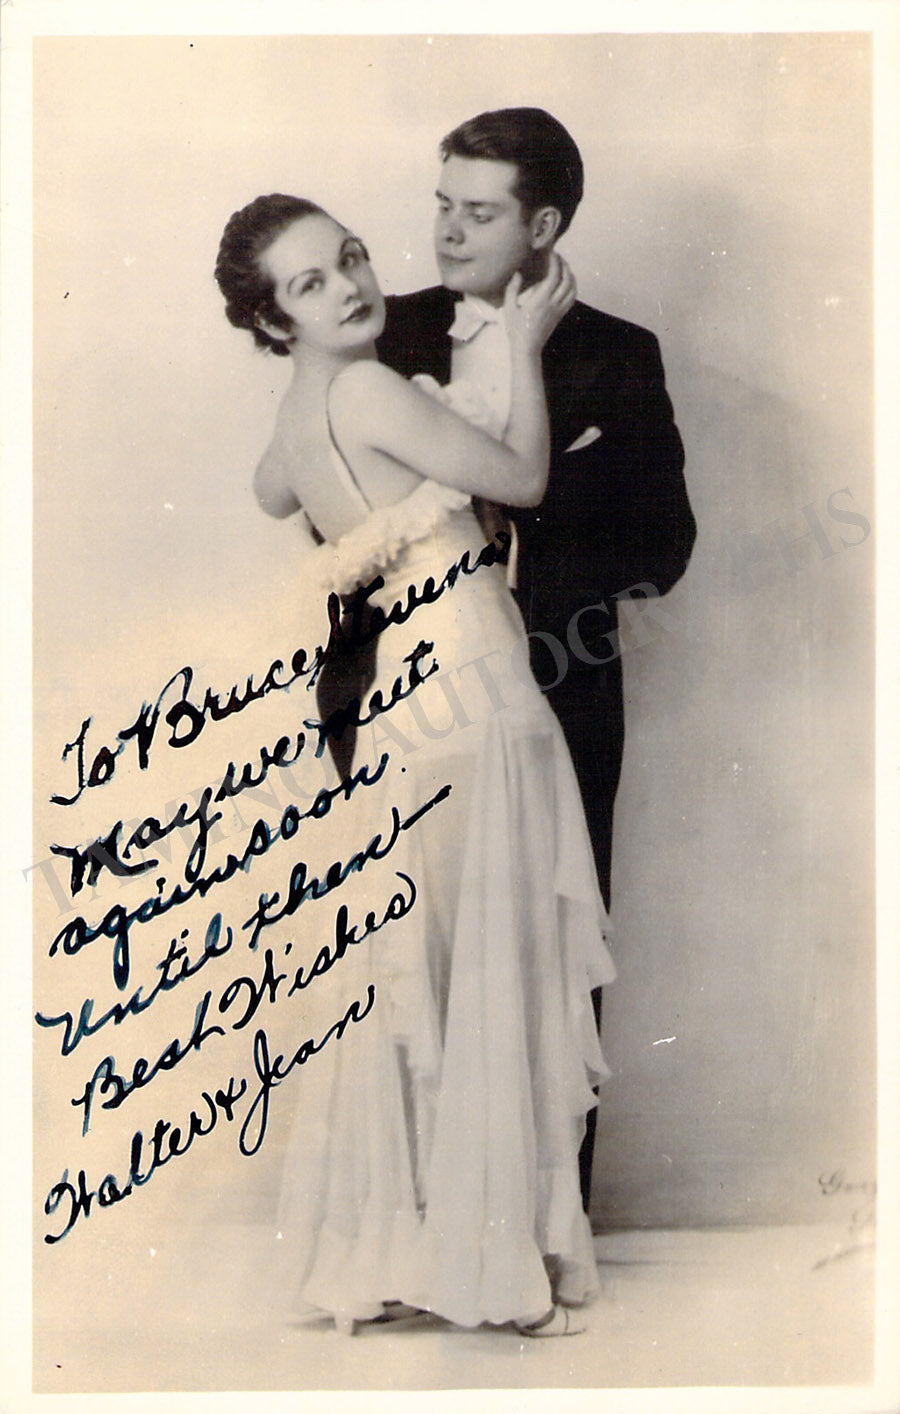 To Bruce Stevens
May we meet
again soon.
Until then—
Best Wishes
Walter & Jean
TAMINO AUTOGRAPHS